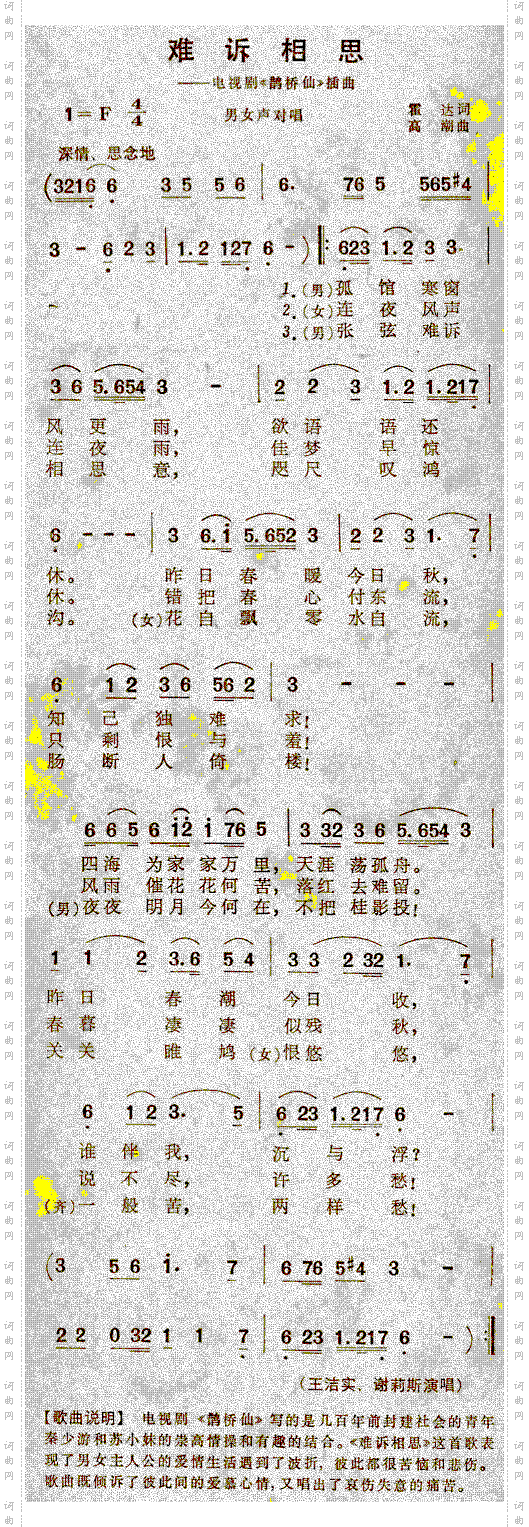 难 诉 相 思
——电视剧《鹊桥仙》插曲
1=F 4/4
男女声对唱
霍 达词
高 潮曲
深情、思念地
(3216 6 3 5 5 6 | 6. 76 5 565#4 |
3 - 6 2 3 | 1.2 127 6 - ) |: 623 1.2 3 3. |
1.(男)孤 馆 寒窗
2.(女)连 夜 风声
3.(男)张 弦 难诉
3 6 5.654 3 - | 2 2 3 1.2 1.217 |
风 更 雨， 欲语 语还
连 夜 雨， 佳梦 早惊
相 思 意， 咫尺 叹鸿
6 - - - | 3 6.1 5.652 3 | 2 2 3 1. 7 |
休。 昨 日 春 暖 今日 秋，
休。 错 把 春 心 付东 流，
沟。 (女)花 自 飘 零 水自 流，
6 1 2 3 6 56 2 | 3 - - - |
知 己 独 难 求！
只 剩 恨 与 羞！
肠 断 人 倚 楼！
6 6 5 6 12 1 76 5 | 3 32 3 6 5.654 3 |
四海 为家 家万 里，天涯 荡孤舟。
风雨 催花 花何 苦，落红 去难留。
(男)夜夜 明月 今何 在，不把 桂影投！
1 1 2 3.6 5 4 | 3 3 2 32 1. 7 |
昨日 春 潮 今日 收，
春暮 凄 凄 似残 秋，
关关 雎 鸠 (女)恨悠 悠，
6 1 2 3. 5 | 6 23 1.217 6 - |
谁 伴 我， 沉 与 浮？
说 不 尽， 许 多 愁！
(齐)一 般 苦， 两 样 愁！
(3 5 6 1. 7 | 6 76 5#4 3 - |
2 2 0 32 1 1 7 | 6 23 1.217 6 - ) :|
(王洁实、谢莉斯演唱)
【歌曲说明】 电视剧《鹊桥仙》写的是几百年前封建社会的青年
秦少游和苏小妹的崇高情操和有趣的结合。《难诉相思》这首歌表
现了男女主人公的爱情生活遇到了波折，彼此都很苦恼和悲伤。
歌曲既倾诉了彼此间的爱慕心情，又唱出了哀伤失意的痛苦。
词曲网